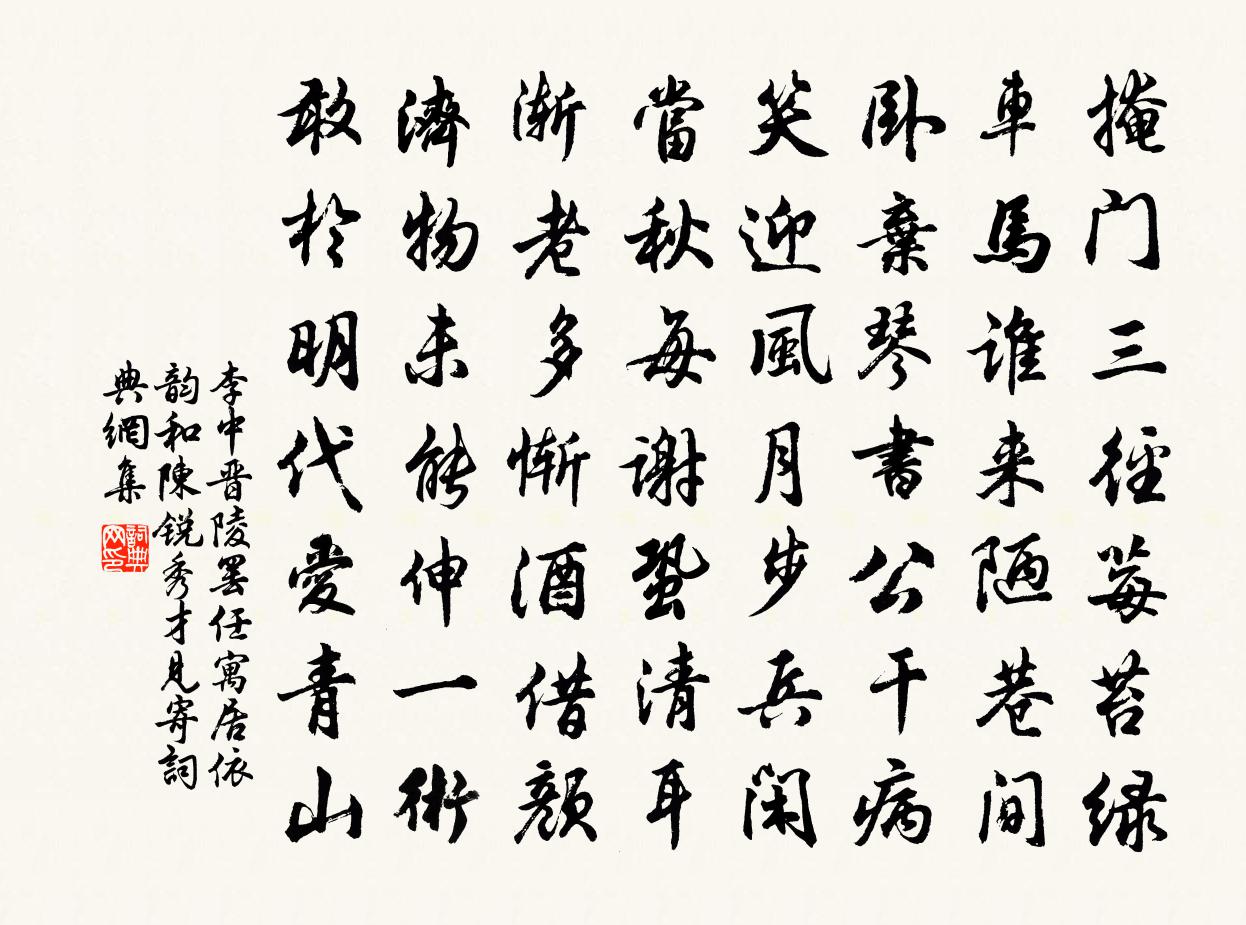 掩门三徑莓苔绿
車馬谁来陋巷间
卧棄琴書公干病
笑迎風月步兵闲
當秋每謝蛩清耳
渐老多惭酒借顏
濟物未能伸一術
敢於明代愛青山
李中晋陵罢任寓居依
韵和陳锐秀才見寄詞
典網集
詞典
网印